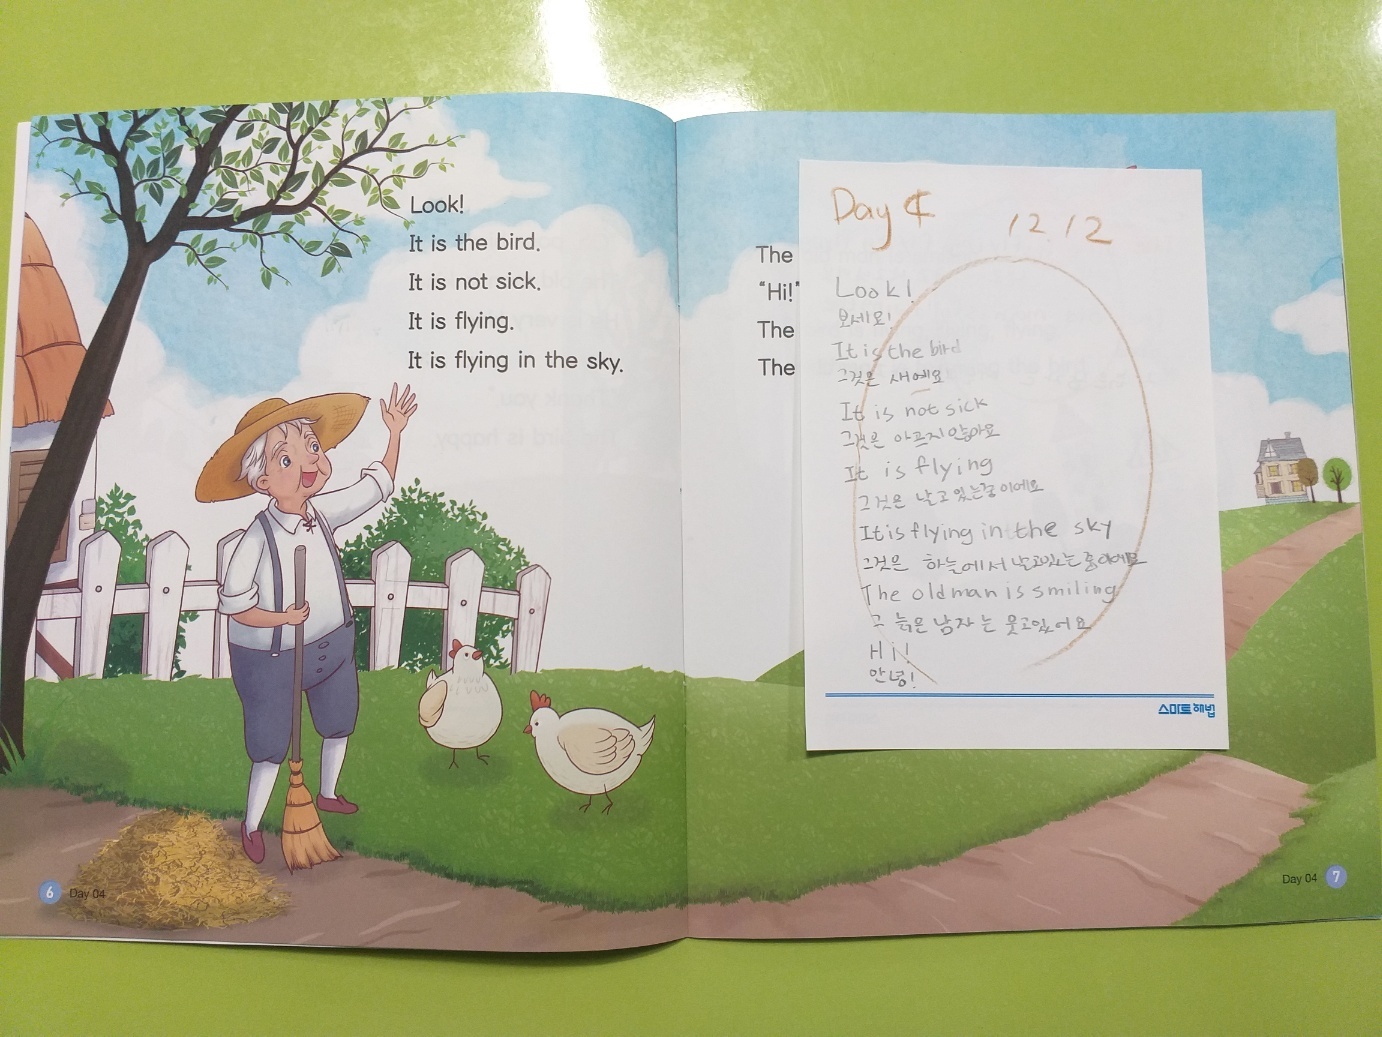 Look!
It is the bird.
It is not sick.
It is flying.
It is flying in the sky.
6 Day 04
The
"Hi!"
The
The
Day 4 12 12
Look!
보세요!
It is the bird
그것은 새예요
It is not sick
그것은 아프지않아요
It is flying
그것은 날고있는중이에요
It is flying in the sky
그것은 하늘에서 날고있는중이에요
The old man is smiling
그 늙은 남자는 웃고있어요
Hi!
안녕!
스마트해법
Day 04 7